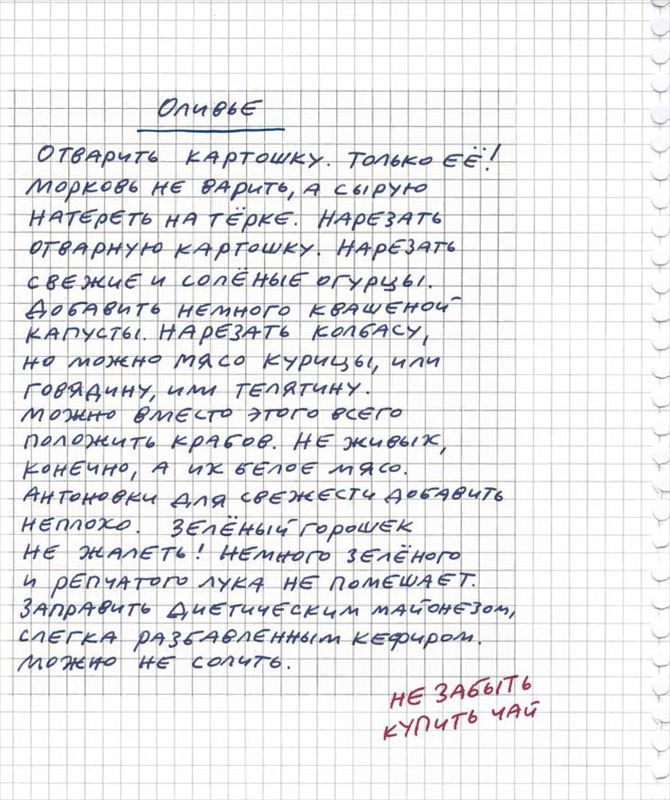 Оливье
Отварить картошку. Только её!
Морковь не варить, а сырую
натереть на тёрке. Нарезать
отварную картошку. Нарезать
свежие и солёные огурцы.
Добавить немного квашеной
капусты. Нарезать колбасу,
но можно мясо курицы, или
говядину, или телятину.
Можно вместо этого всего
положить крабов. Не живых,
конечно, а их белое мясо.
Антоновки для свежести добавить
неплохо. Зелёный горошек
не жалеть! Немного зелёного
и репчатого лука не помешает.
Заправить диетическим майонезом,
слегка разбавленным кефиром.
Можно не солить.
Не забыть
купить чай